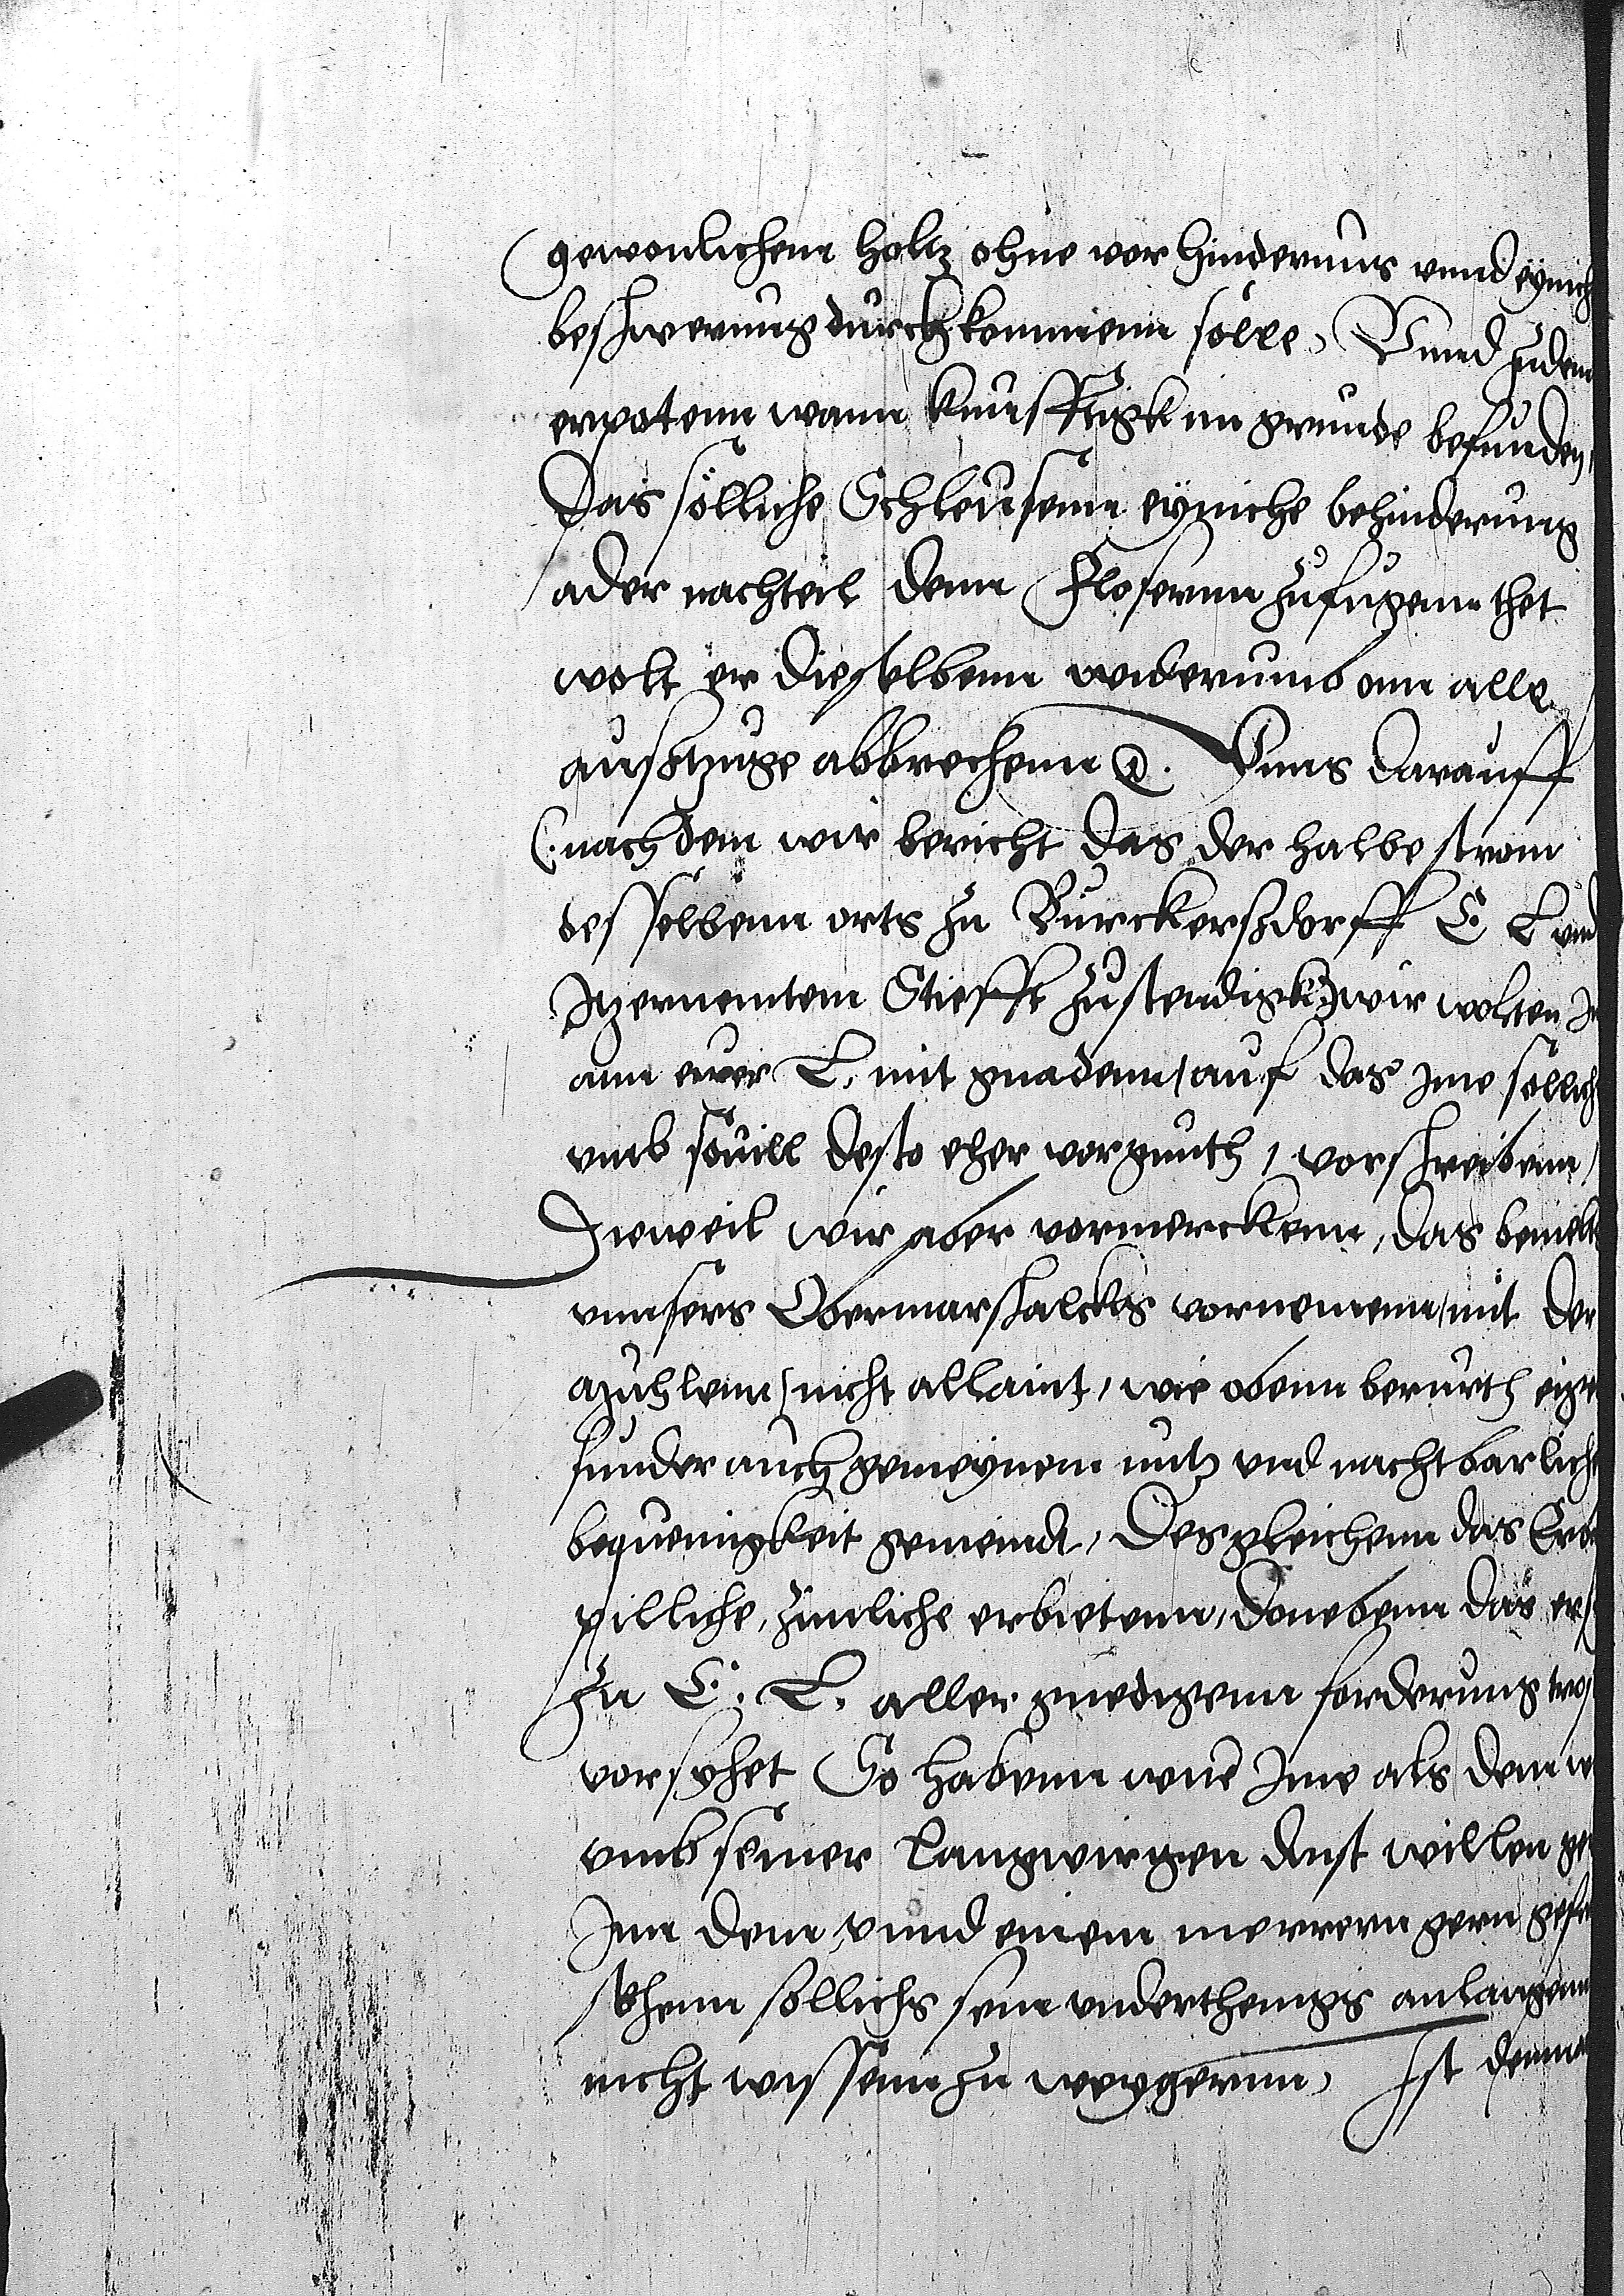 gewonlichenn holtz ohne vorhindernus vnnd eynich
beschwerung durch kommenn solle, Vnnd zudem
erpotenn wann kunfftigk im grunde befunden,
Das solliche Schleusenn eyniche behinderung
ader nachteil denn Floserrnn zufugenn thet
wolt er dieselbenn widerumb onn alle
ausztzuge abbrechenn Vnns darauff
(: nachdem wir bericht das der halbe strom
desselbenn orts zu Burckerszdorff E L vnd
Stiefft zustendigk :) wir wolten
ann ewer L. mit gnadenn / auf das ime sollich
vmb souill desto eher vorgunth / vorschreibenn /
Dieweil wir aber vormerckenn, das bemelt
vnnsers Obermarschalcks vornemenn / mit der
nicht allaint, wie obenn berurth eige
sunder auch gemeynem nutz vnd nachtbarlich
bequemigkeit gemeindt, Desgleichenn das
pilliche, zimliche erbietenn, Donebenn das er
zu E. L. aller gnedigenn forderung
vorsyhet So habenn wir Ime als dem
vmb seiner langwirigen dinst willen
Inn dem vnnd einem merrern gern
sollichs sein vnderthenigs anlangenn
nicht wissenn zu weygernn, Ist